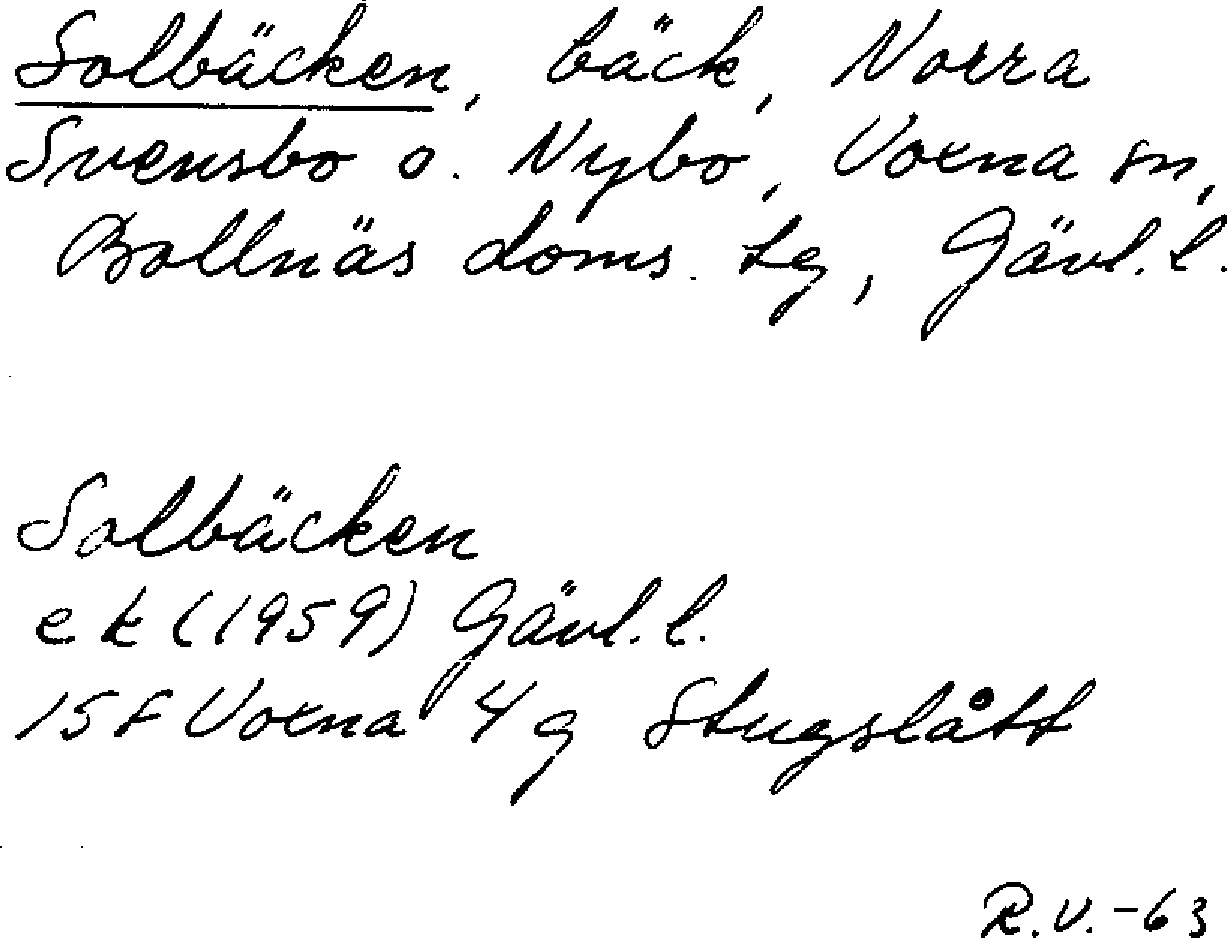 Solbäcken, bäck, Norra
Svensbo o. Nybo, Voxna sn,
Bollnäs doms. tg, Gävl. l.
Solbäcken
ek (1959) Gävl. l.
15f Voxna 4 g Stugslått
R.V.-63